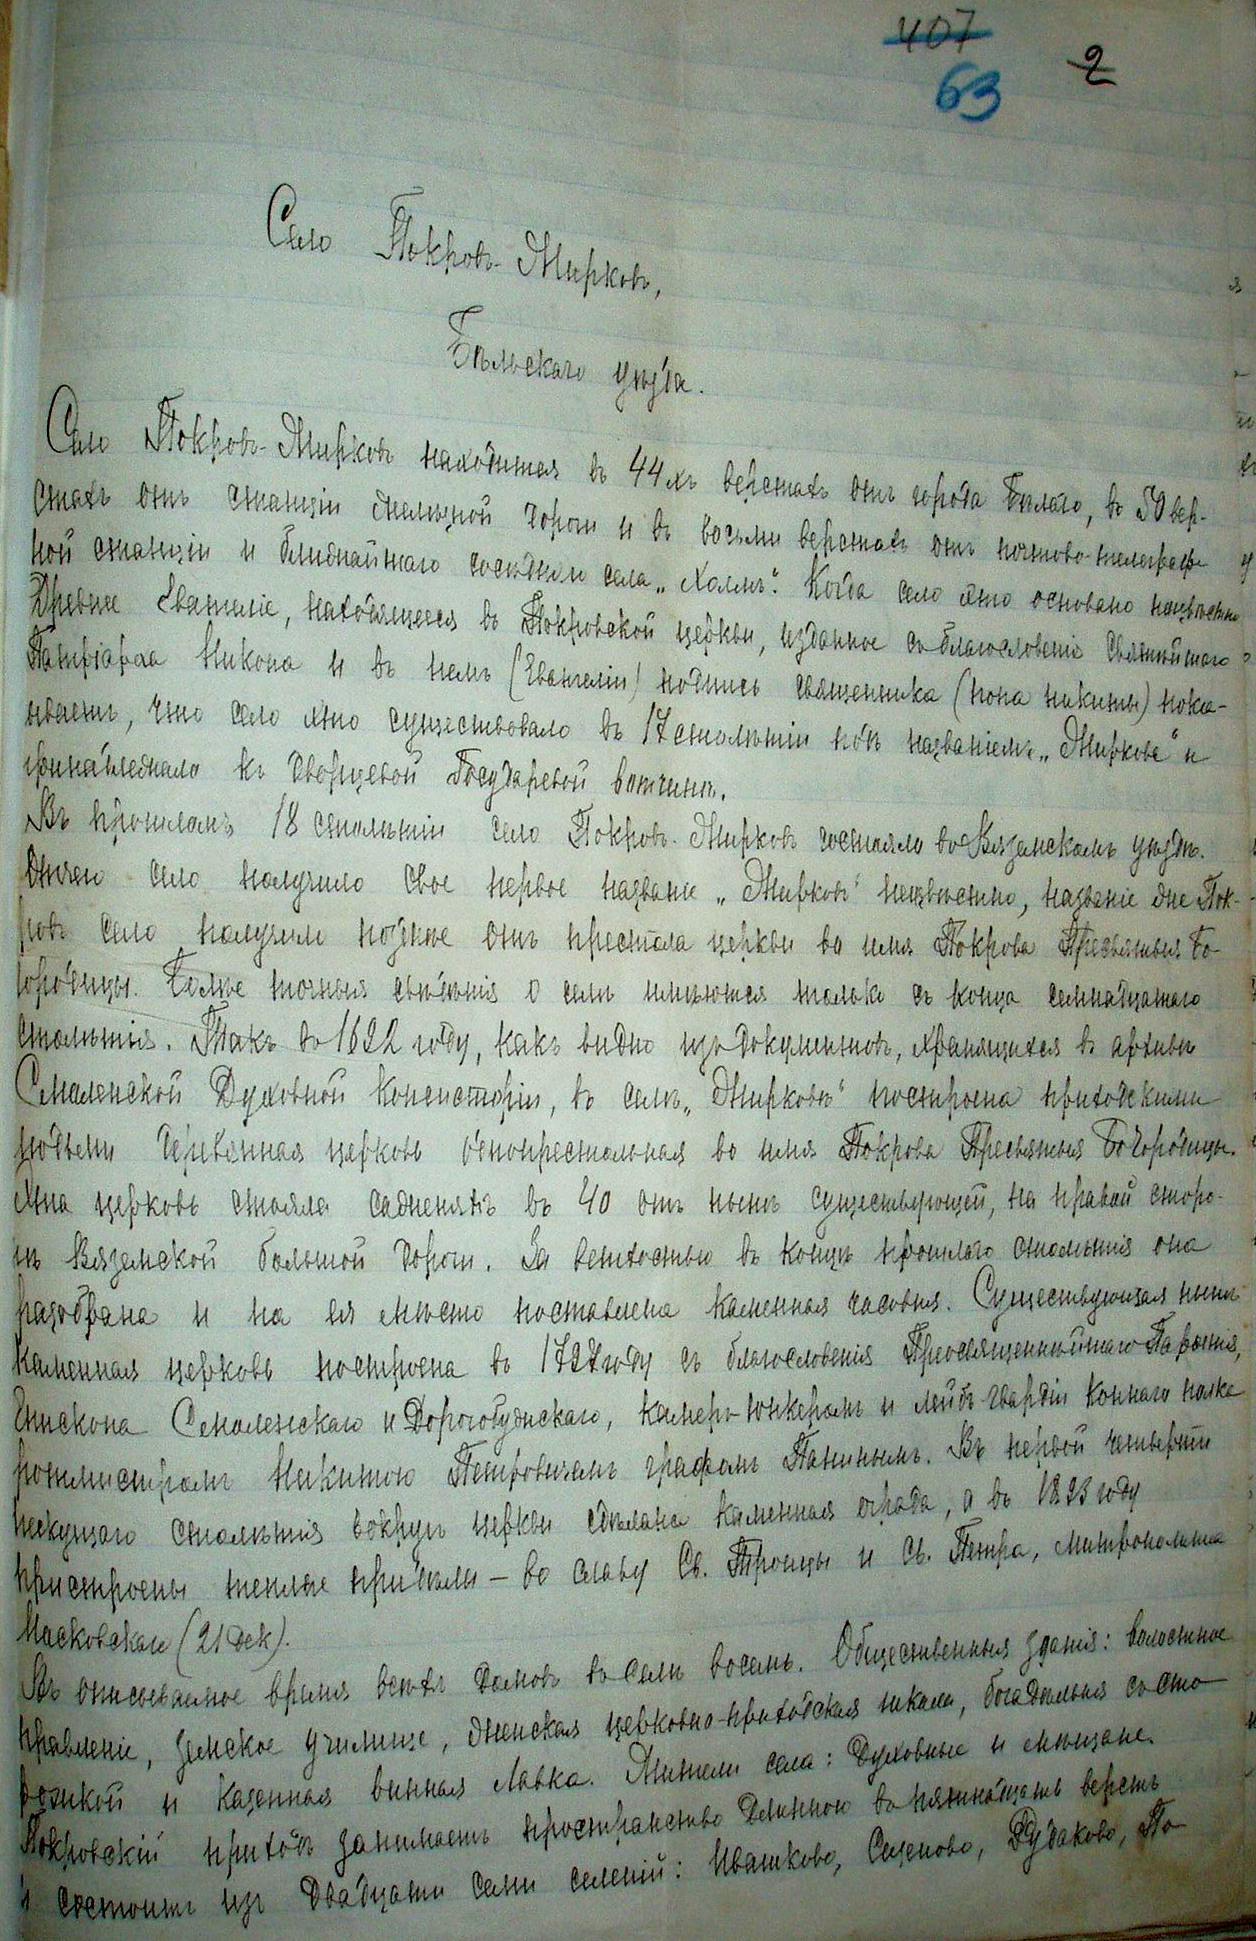 407
63
2
Село Покровъ-Жирковъ,
Бѣльскаго уѣзда.
Село Покровъ-Жирковъ находится въ 44хъ верстахъ отъ города Бѣлаго, въ 50 вер-
стахъ отъ станціи желѣзной дороги и въ восьми верстахъ отъ почтово-телеграф-
ной станціи и ближайшаго сосѣдняго села „Холмъ". Когда село это основано неизвѣстно
Древнее Евангеліе, находящееся въ Покровской церкви, изданное съ благословенія Святѣйшаго
Патріарха Никона и въ немъ (Евангеліи) подпись священника (попа Никиты) пока-
зываетъ, что село это существовало въ 17 столѣтіи подъ названіемъ „Жирковъ" и
принадлежало къ дворцовой Государевой вотчинѣ.
Въ прошломъ 18 столѣтіи село Покровъ-Жирковъ состояло въ Вяземскомъ уѣздѣ.
Отчего село получило свое первое названіе „Жирковъ" неизвѣстно, названіе же Пок-
ровъ село получило позднѣе отъ престола церкви во имя Покрова Пресвятыя Бо-
городицы. Болѣе точныя свѣдѣнія о селѣ имѣются только съ конца семнадцатаго
столѣтія. Такъ въ 1692 году, какъ видно изъ документовъ, хранящихся въ архивѣ
Смоленской Духовной Консисторіи, въ селѣ „Жирковѣ" построена приходскими
людьми деревянная церковь однопрестольная во имя Покрова Пресвятыя Богородицы.
Эта церковь стояла саженяхъ въ 40 отъ нынѣ существующей, на правой сторо-
нѣ Вяземской большой дороги. За ветхостью въ концѣ прошлаго столѣтія она
разобрана и на ея мѣсто поставлена каменная часовня. Существующая нынѣ
каменная церковь построена въ 1787 году съ благословенія Преосвященнѣйшаго Парѳенія,
Епископа Смоленскаго и Дорогобужскаго, камеръ-юнкеромъ и лейбъ-гвардіи Коннаго полка
ротмистромъ Никитою Петровичемъ графомъ Панинымъ. Въ первой четверти
текущаго столѣтія вокругъ церкви сдѣлана каменная ограда, а въ 1823 году
пристроены теплые придѣлы – во славу Св. Троицы и Св. Петра, Митрополита
Московскаго (21 дек).
Въ описываемое время всѣхъ домовъ въ селѣ восемь. Общественныя зданія: волостное
правленіе, земское училище, женская церковно-приходская школа, богадѣльня со сто-
рожкой и казенная винная лавка. Жители села: духовные и мѣщане.
Покровскій приходъ занимаетъ пространство длиною въ пятнадцать верстъ
и состоитъ изъ двадцати семи селеній: Ивашково, Сеженово, Дудаково, По-